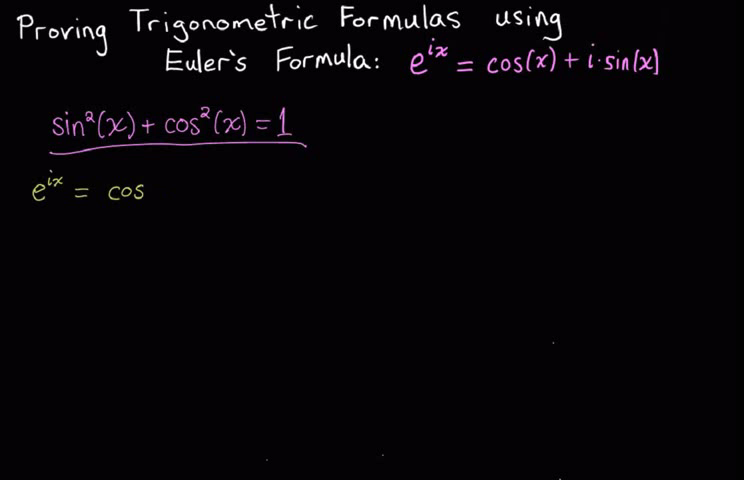 Proving Trigonometric Formulas using
Euler's Formula: e^{ix} = cos(x) + i·sin(x)
sin²(x) + cos²(x) = 1
e^{ix} = cos